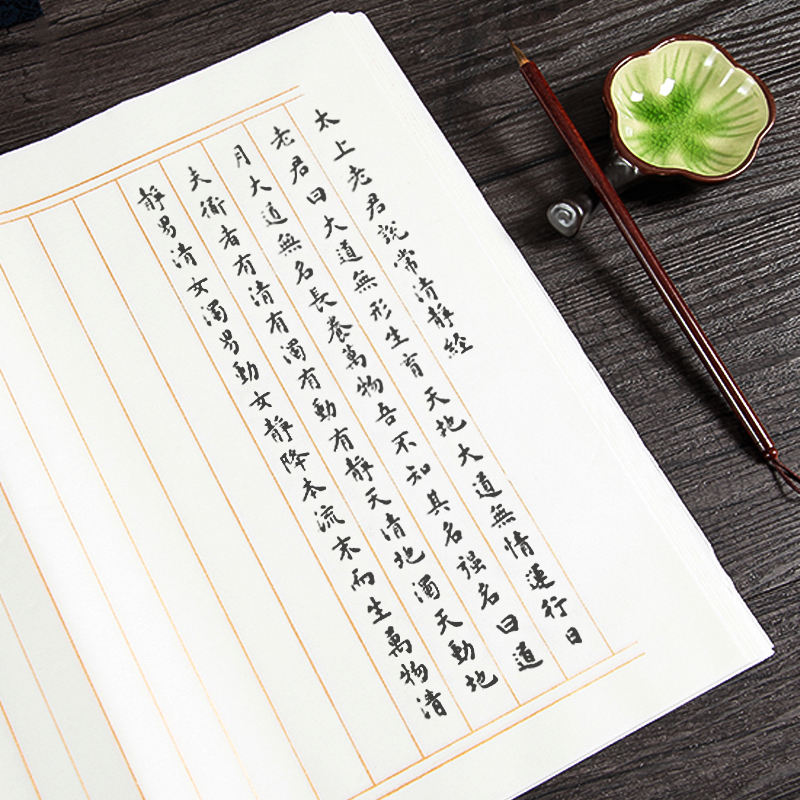 太上老君説常清静経
老君曰大道無形生育天地大道無情運行日
月大道無名長養萬物吾不知其名强名曰道
夫衜者有清有濁有動有靜天清地濁天動地
靜男清女濁男動女靜降本流末而生萬物清